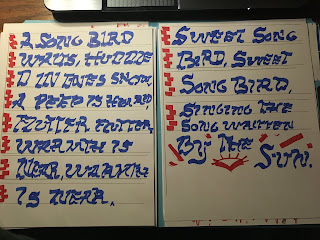 A SONG BIRD
WAITS, HUDDLE
D IN SNOW,
A PEEP IS HEARD,
FLUTTER FLUTTER,
WARMTH IS
NEAR, WARMTH
IS NEAR.
SWEET SONG
BIRD, SWEET
SONG BIRD,
SINGING THE
SONG WRITTEN
BY THE SUN.